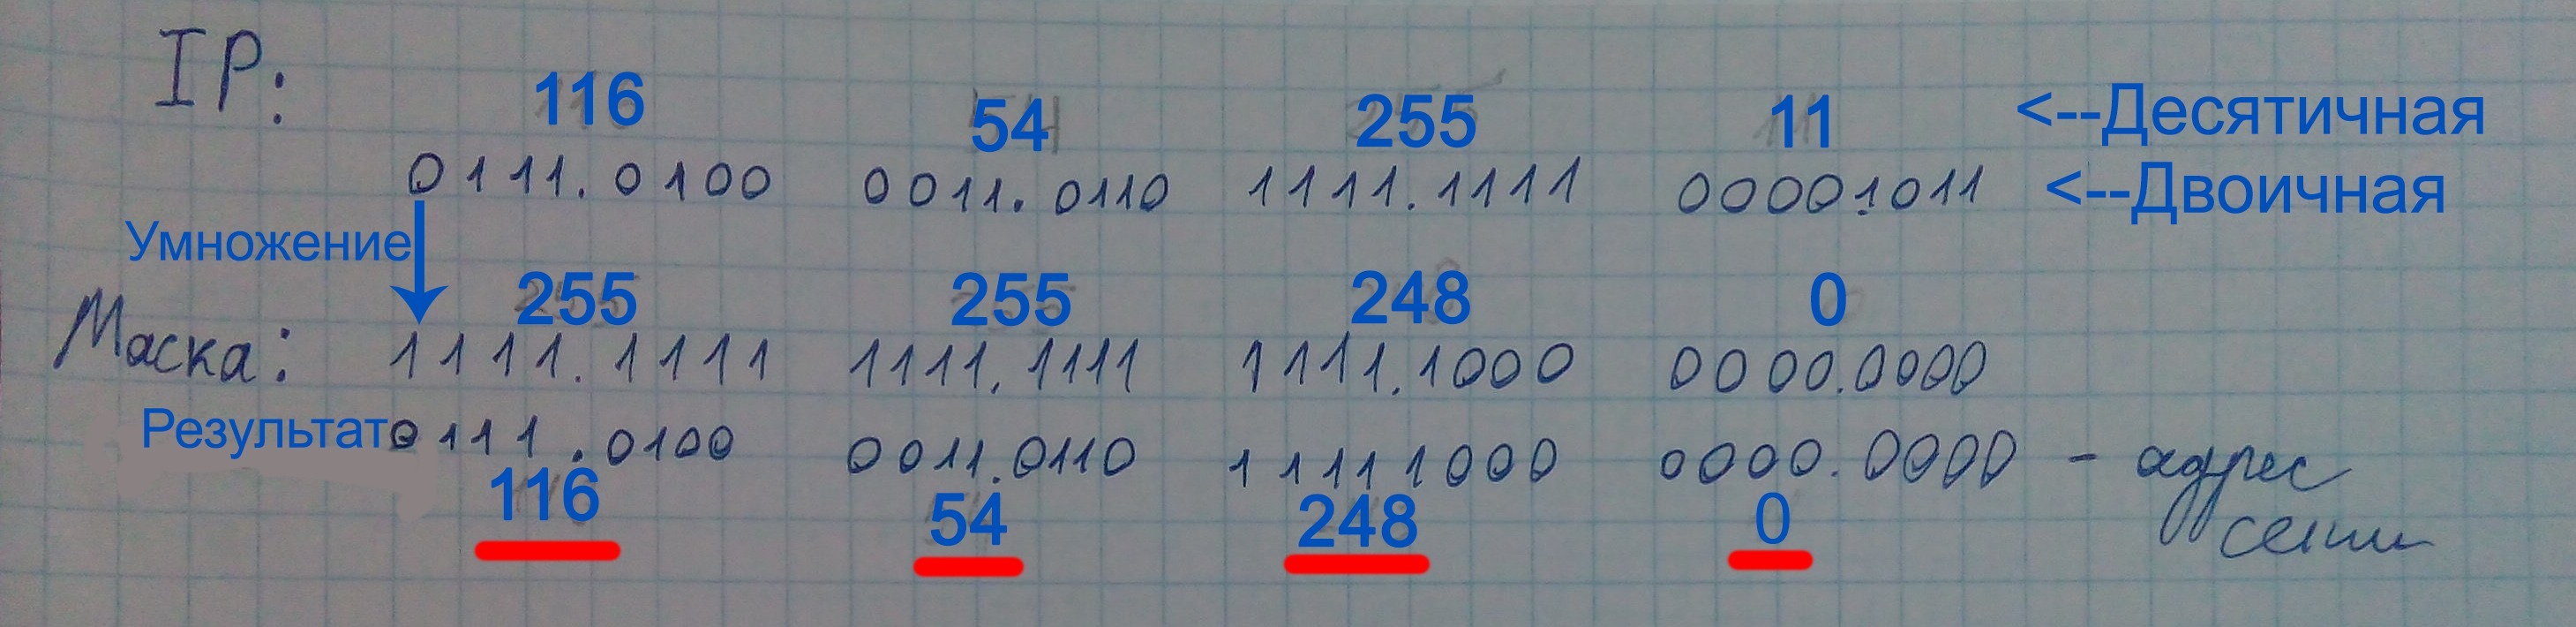 IP:
116 54 255 11 <--Десятичная
0111.0100 0011.0110 1111.1111 0000.1011 <--Двоичная
Умножение
255 255 248 0
Маска: 1111.1111 1111.1111 1111.1000 0000.0000
Результат 0111.0100 0011.0110 11111000 0000.0000 - адрес
116 54 248 0 сети